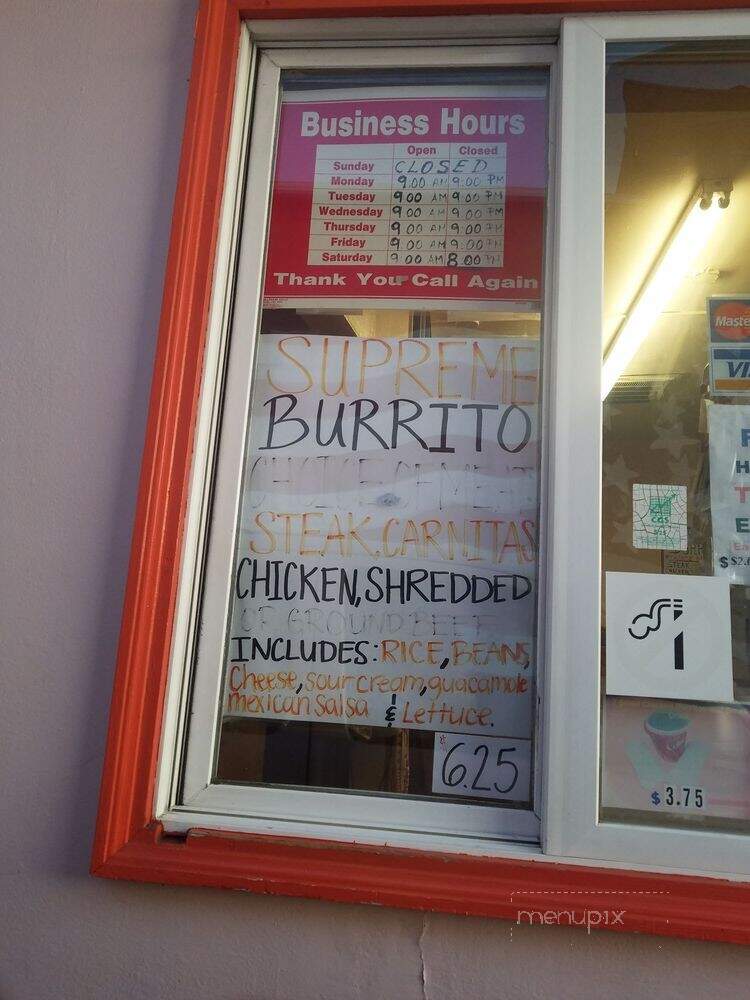 Business Hours
Open Closed
Sunday CLOSED
Monday 9:00 AM 9:00 PM
Tuesday 9 00 AM 9 00 PM
Wednesday 9 00 AM 9 00 PM
Thursday 9 00 AM 9:00 PM
Friday 9:00 AM 9:00 PM
Saturday 9 00 AM 8:00 PM
Thank You Call Again
SUPREME
BURRITO
CHOICE OF MEAT
STEAK, CARNITAS
CHICKEN, SHREDDED
OR GROUND BEEF
INCLUDES: RICE, BEANS,
Cheese, sour cream, guacamole
mexican salsa & Lettuce.
$6.25
Maste
VI
STEAK
$3.75
menupix